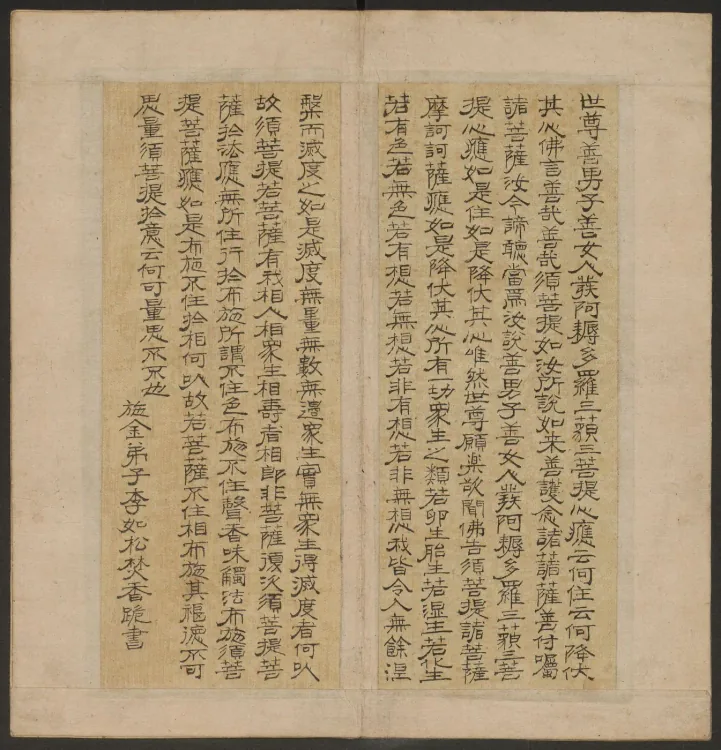 世尊善男子善女人發阿耨多羅三藐三菩提心應云何住云何降伏
其心佛言善哉善哉須菩提如汝所說如来善護念諸藷薩善付囑
諸菩薩汝今諦聽當爲汝說善男子善女人發阿耨多羅三藐三菩
提心應如是住如是降伏其心唯然世尊願樂欲聞佛告須菩提諸菩薩
摩訶訶薩應如是降伏其心所有一切衆生之類若卵生胎生若湿生若化生
若有色若無色若有想若無想若非有想若非無想我皆令入無餘涅
槃而滅度之如是滅度無量無數無邊衆生實無衆生得滅度者何以
故須菩提若菩薩有我相人相衆生相壽者相即非菩薩復次須菩提菩
薩於法應無所住行於布施所謂不住色布施不住聲香味觸法布施須菩
提菩薩應如是布施不住於相何以故若菩薩不住相布施其福德不可
思量須菩提於意云何可量思不不也
施金弟子李如松焚香跪書